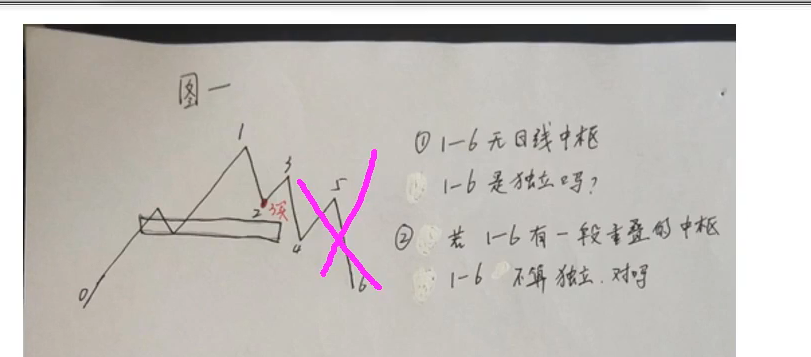 图一
1
3
5
2 3买
4
6
0
① 1-6 无日线中枢
1-6 是独立吗?
② 若 1-6 有一段重叠的中枢
1-6 不算独立.对吗